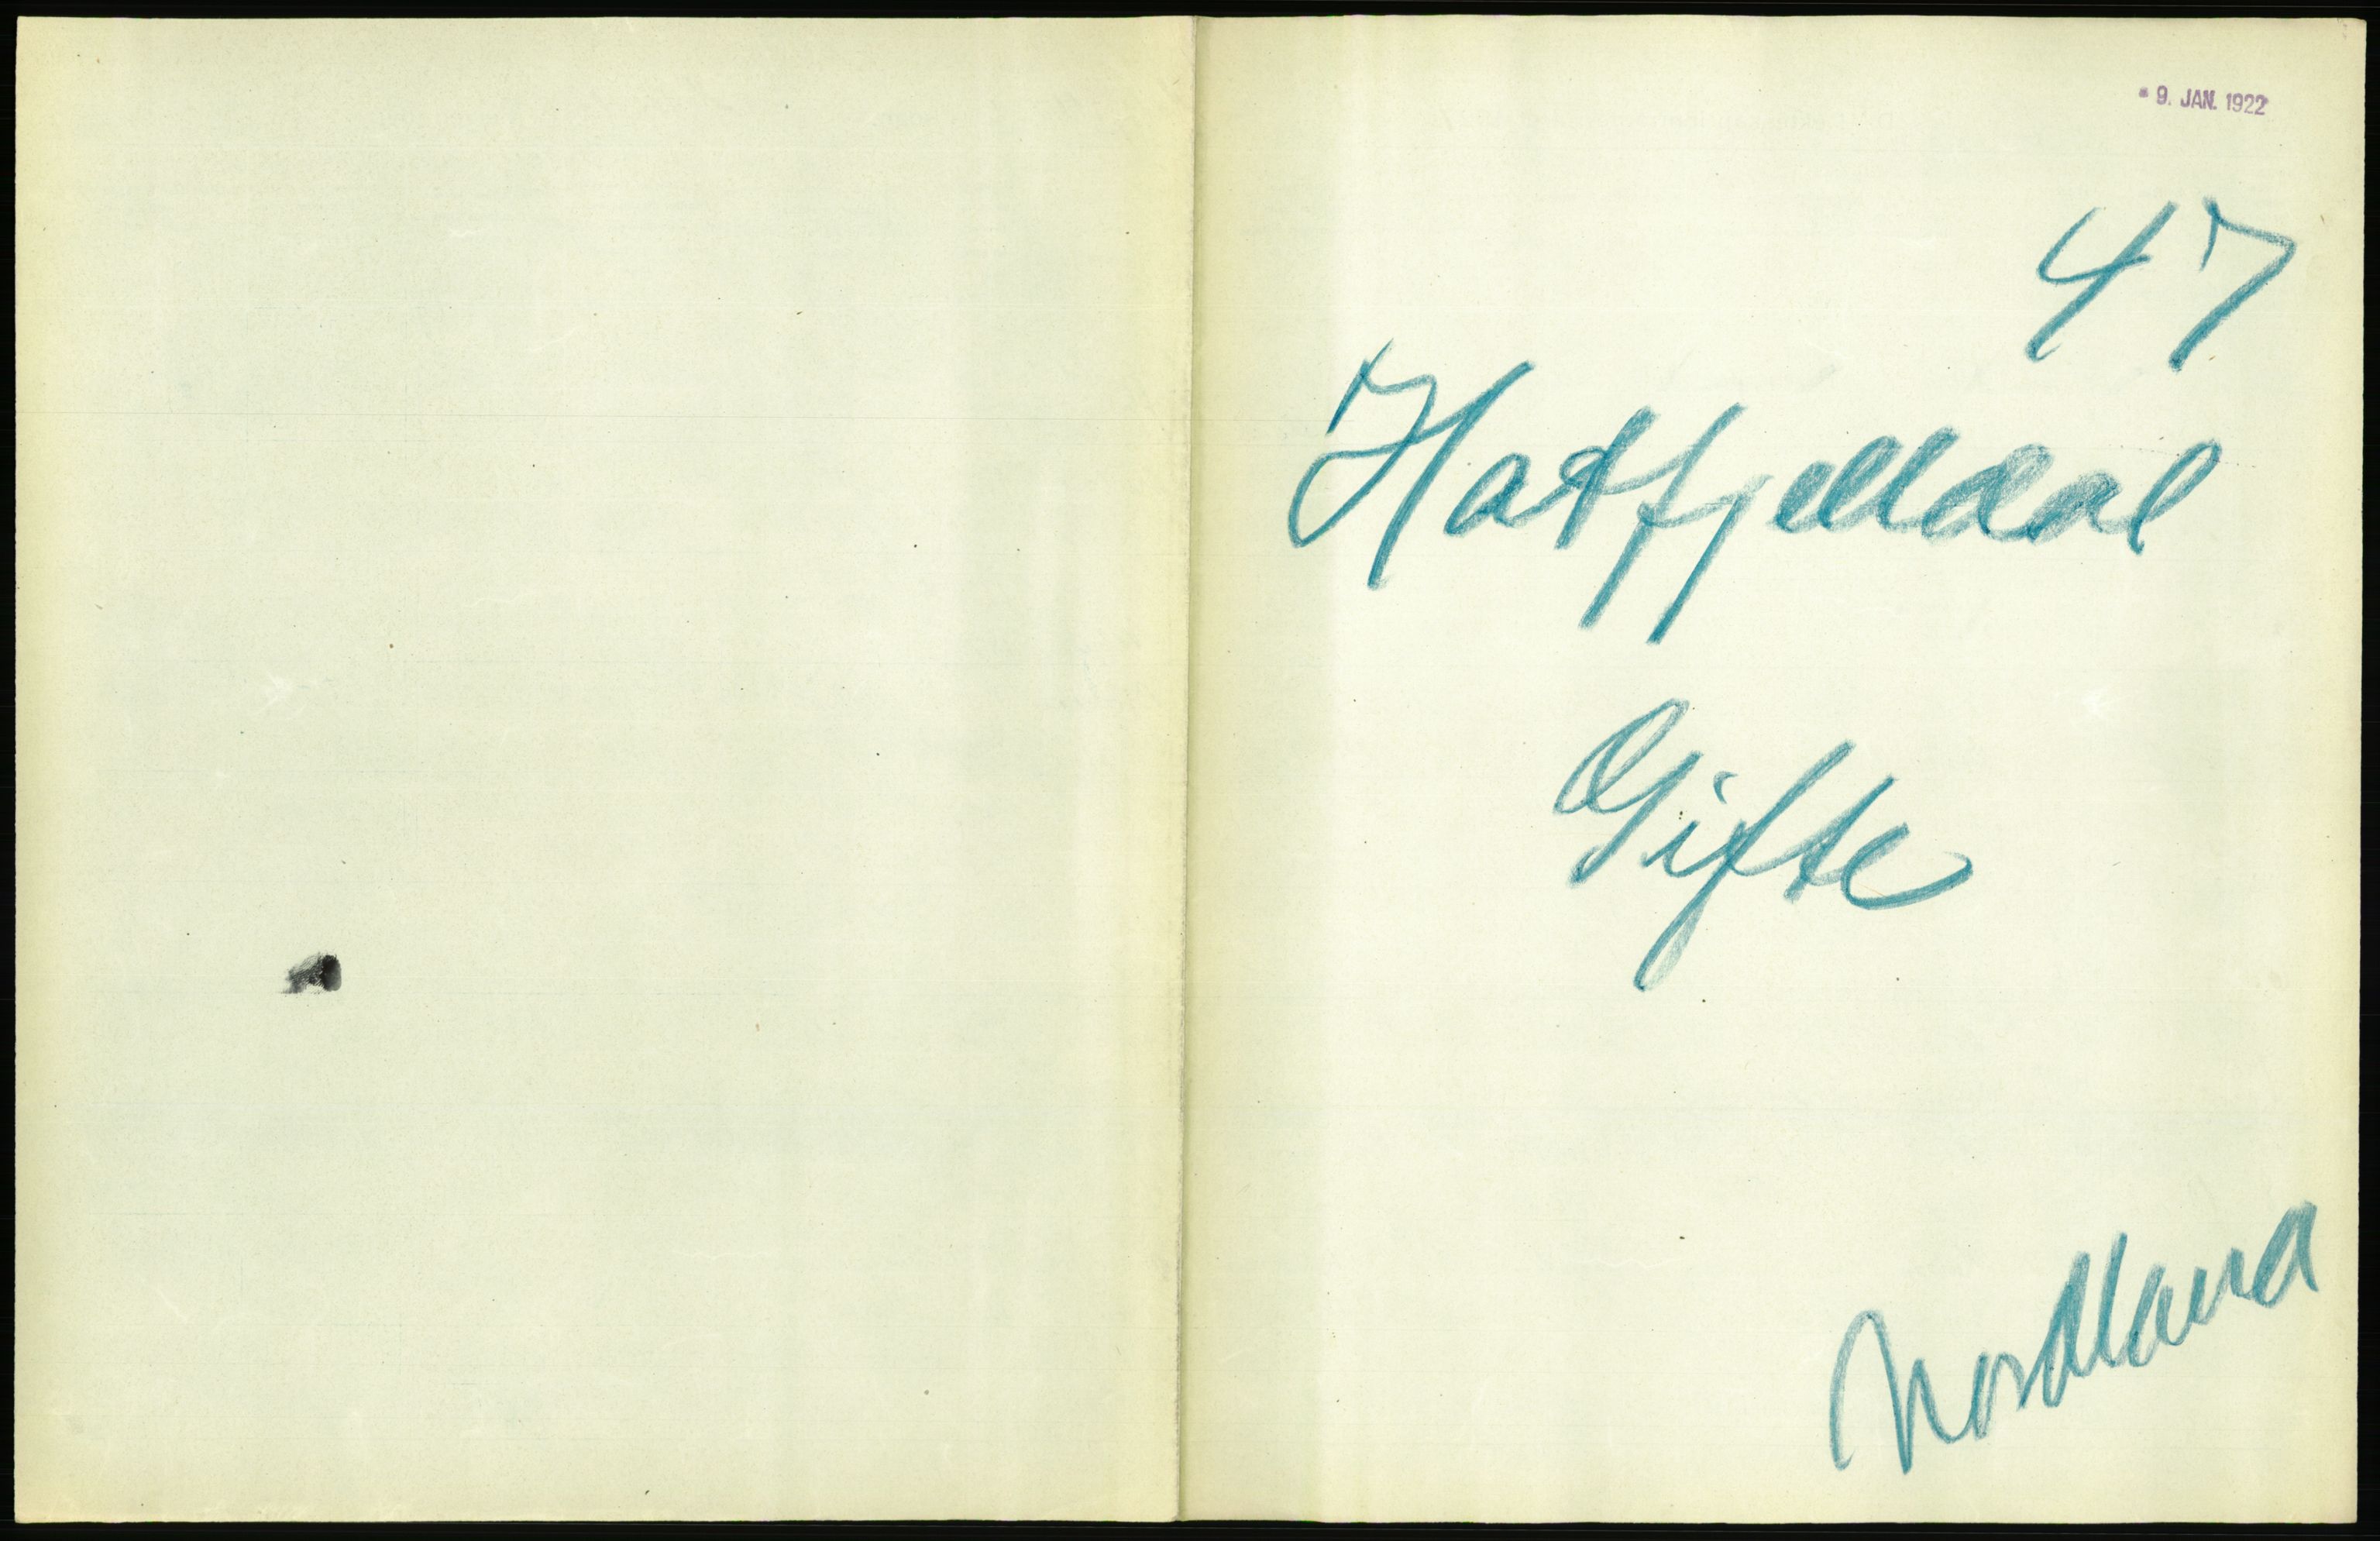 * 9. JAN. 1922
47
Hatfjelldal
Gifte
Nordland